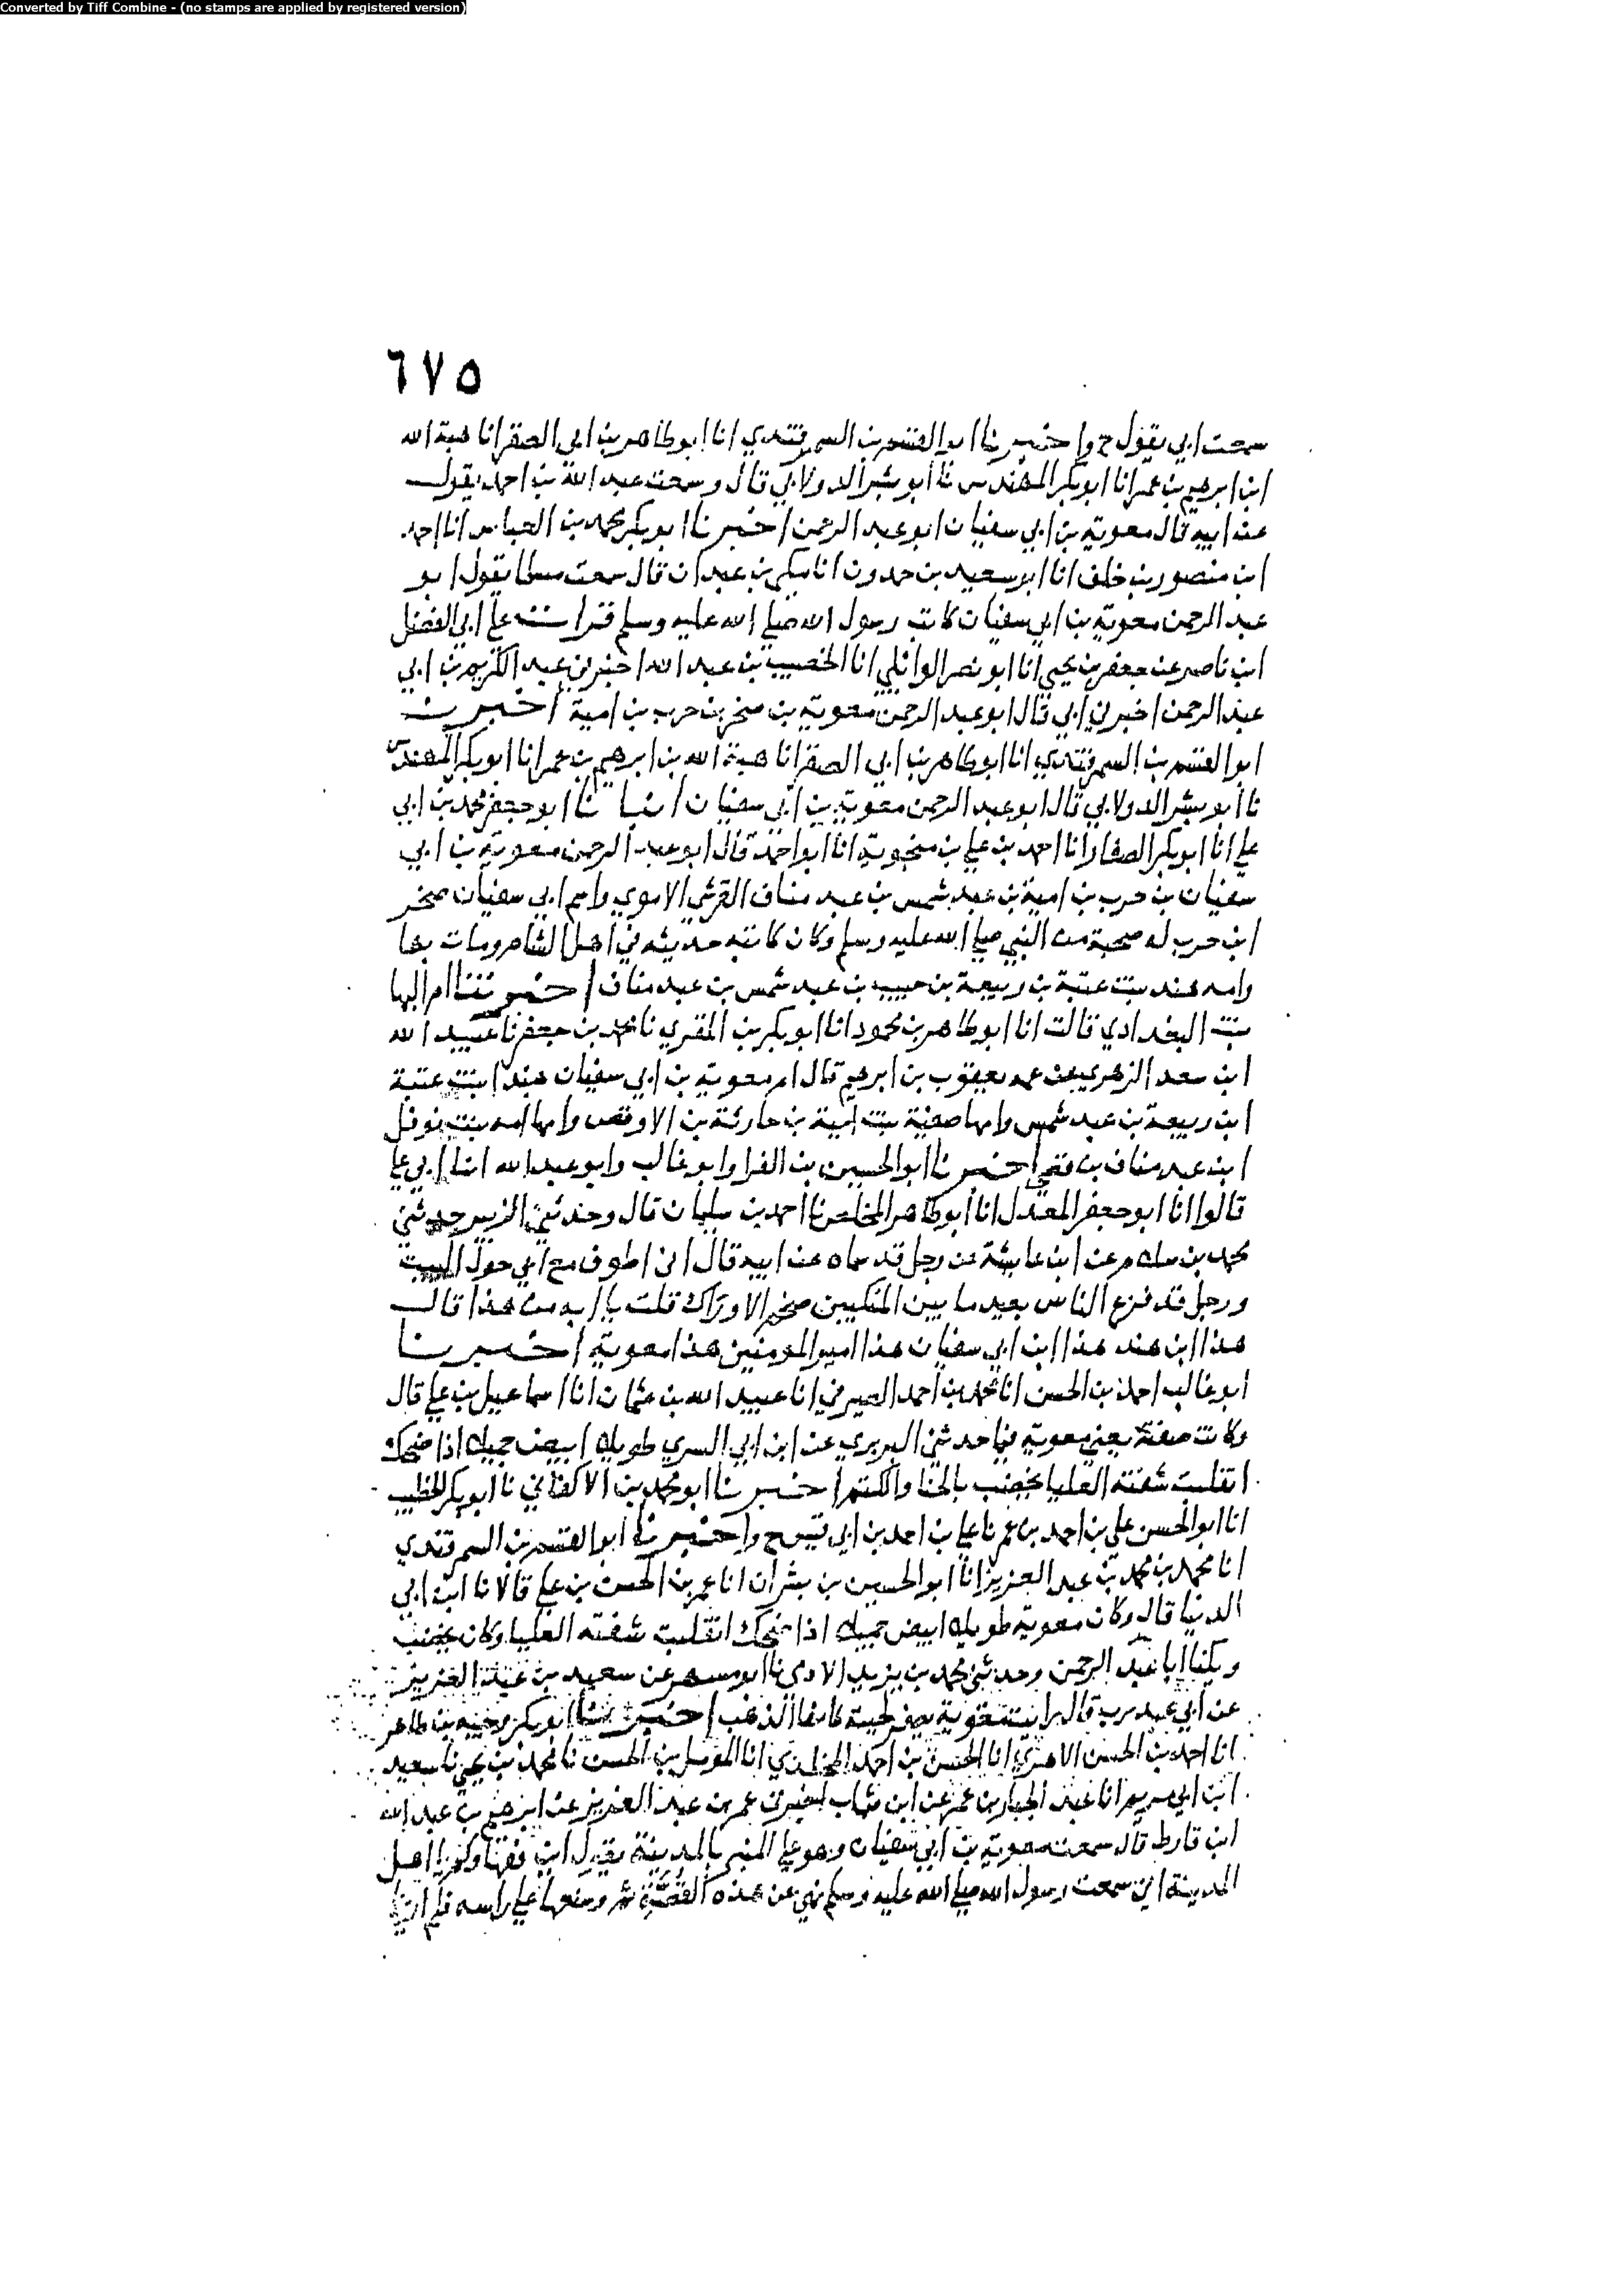 Converted by Tiff Combine - (no stamps are applied by registered version)
٦٧٥
سمعت ابي يقول ح واخبرنا ابو القسم بن السمرقندي انا ابو طاهر بن ابي الصقر انا هبة الله
ابن ابرهيم بن عمر انا ابو بكر المهندس نا ابو بشر الدولابي قال وسمعت عبد الله بن احمد يقول
عن ابيه قال معوية بن ابي سفيان ابو عبد الرحمن اخبرنا ابو بكر محمد بن العباس انا احمد
ابن منصور بن خلف انا ابو سعيد بن حمدون انا مكي بن عبدان قال سمعت مسلما يقول ابو
عبد الرحمن معوية بن ابي سفيان كاتب رسول الله صلى الله عليه وسلم قرات على ابي الفضل
ابن ناصر عن جعفر بن يحيى انا ابو نصر الوائلي انا الخصيب بن عبد الله اخبرني عبد الكريم بن ابي
عبد الرحمن اخبرني ابي قال ابو عبد الرحمن معوية بن صخر بن حرب بن امية اخبرنا
ابو القسم بن السمرقندي انا ابو طاهر بن ابي الصقر انا هبة الله بن ابرهيم بن عمر انا ابو بكر المهندس
نا ابو بشر الدولابي قال ابو عبد الرحمن معوية بن ابي سفيان انبانا ابو جعفر محمد بن ابي
علي انا ابو بكر الصفار انا احمد بن علي بن منجوية انا ابو احمد قال ابو عبد الرحمن معوية بن ابي
سفيان بن حرب بن امية بن عبد شمس بن عبد مناف القرشي الاموي واسم ابي سفيان صخر
ابن حرب له صحبة من النبي صلى الله عليه وسلم وكان كاتبه حديثه في اهل الشام ومات بها
وامه هند بنت عتبة بن ربيعة بن حبيب بن عبد شمس بن عبد مناف اخبرتنا ام البها
بنت البغدادي قالت انا ابو طاهر بن محمود انا ابو بكر بن المقري نا محمد بن جعفر نا عبيد الله
ابن سعد الزهري عن عمه يعقوب بن ابرهيم قال ام معوية بن ابي سفيان هند ابنت عتبة
ابن ربيعة بن عبد شمس وامها صفية بنت امية بن حارثة بن الاوقص وامها امه بنت نوفل
ابن عبد مناف بن قصي اخبرنا ابو الحسين بن الفرا وابو غالب وابو عبد الله ابنا ابي علي
قالوا انا ابو جعفر المعدل انا ابو طاهر المخلص نا احمد بن سليمان قال وحدثني الزبير حدثني
محمد بن سلام عن ابن عايشة عن رجل قد سماه عن ابيه قال اني اطوف مع ابي حول البيت
ورجل قد فزع الناس بعيد ما بين المنكبين ضخم الاوراك قلت يا ابه من هذا قال
هذا ابن هند هذا ابن ابي سفيان هذا امير المومنين هذا معوية اخبرنا
ابو غالب احمد بن الحسن انا محمد بن احمد الصيرفي انا عبيد الله بن عثمان انا اسماعيل بن علي قال
وكانت صفته يعني معوية فيما حدثني البربري عن ابن ابي السري طويل ابيض جميل اذا ضحك
انقلبت شفته العليا يخضب بالحنا والكتم اخبرنا ابو محمد بن الاكفاني نا ابو بكر الخطيب
انا ابو الحسن علي بن احمد بن عمر نا علي بن احمد بن ابي قيس ح واخبرنا ابو القسم بن السمرقندي
انا محمد بن محمد بن عبد العزيز انا ابو الحسين بن بشران انا عمر بن الحسن بن علي قالا نا ابن ابي
الدنيا قال وكان معوية طويل ابيض جميل اذا ضحك انقلبت شفته العليا وكان يخضب
ويكنا ابا عبد الرحمن وحدثني محمد بن يزيد الادمي نا ابو مسهر عن سعيد بن عبد العزيز
عن ابي عبد رب قال رايت معوية يصفر لحيته كانها الذهب اخبرنا ابو بكر وجيه بن طاهر
انا احمد بن الحسن الازهري انا الحسن بن احمد المخلدي انا المومل بن الحسن نا محمد بن يحيى نا سعيد
ابن ابي مريم انا عبد الجبار بن عمر عن ابن شهاب اخبرني عمر بن عبد العزيز عن ابرهيم بن عبد الله
ابن قارط قال سمعت معوية بن ابي سفيان وهو على المنبر بالمدينة يقول اين فقهاوكم يا اهل
المدينة اني سمعت رسول الله صلى الله عليه وسلم نهي عن هذه القصة ثم وضعها على راسه فلم ار